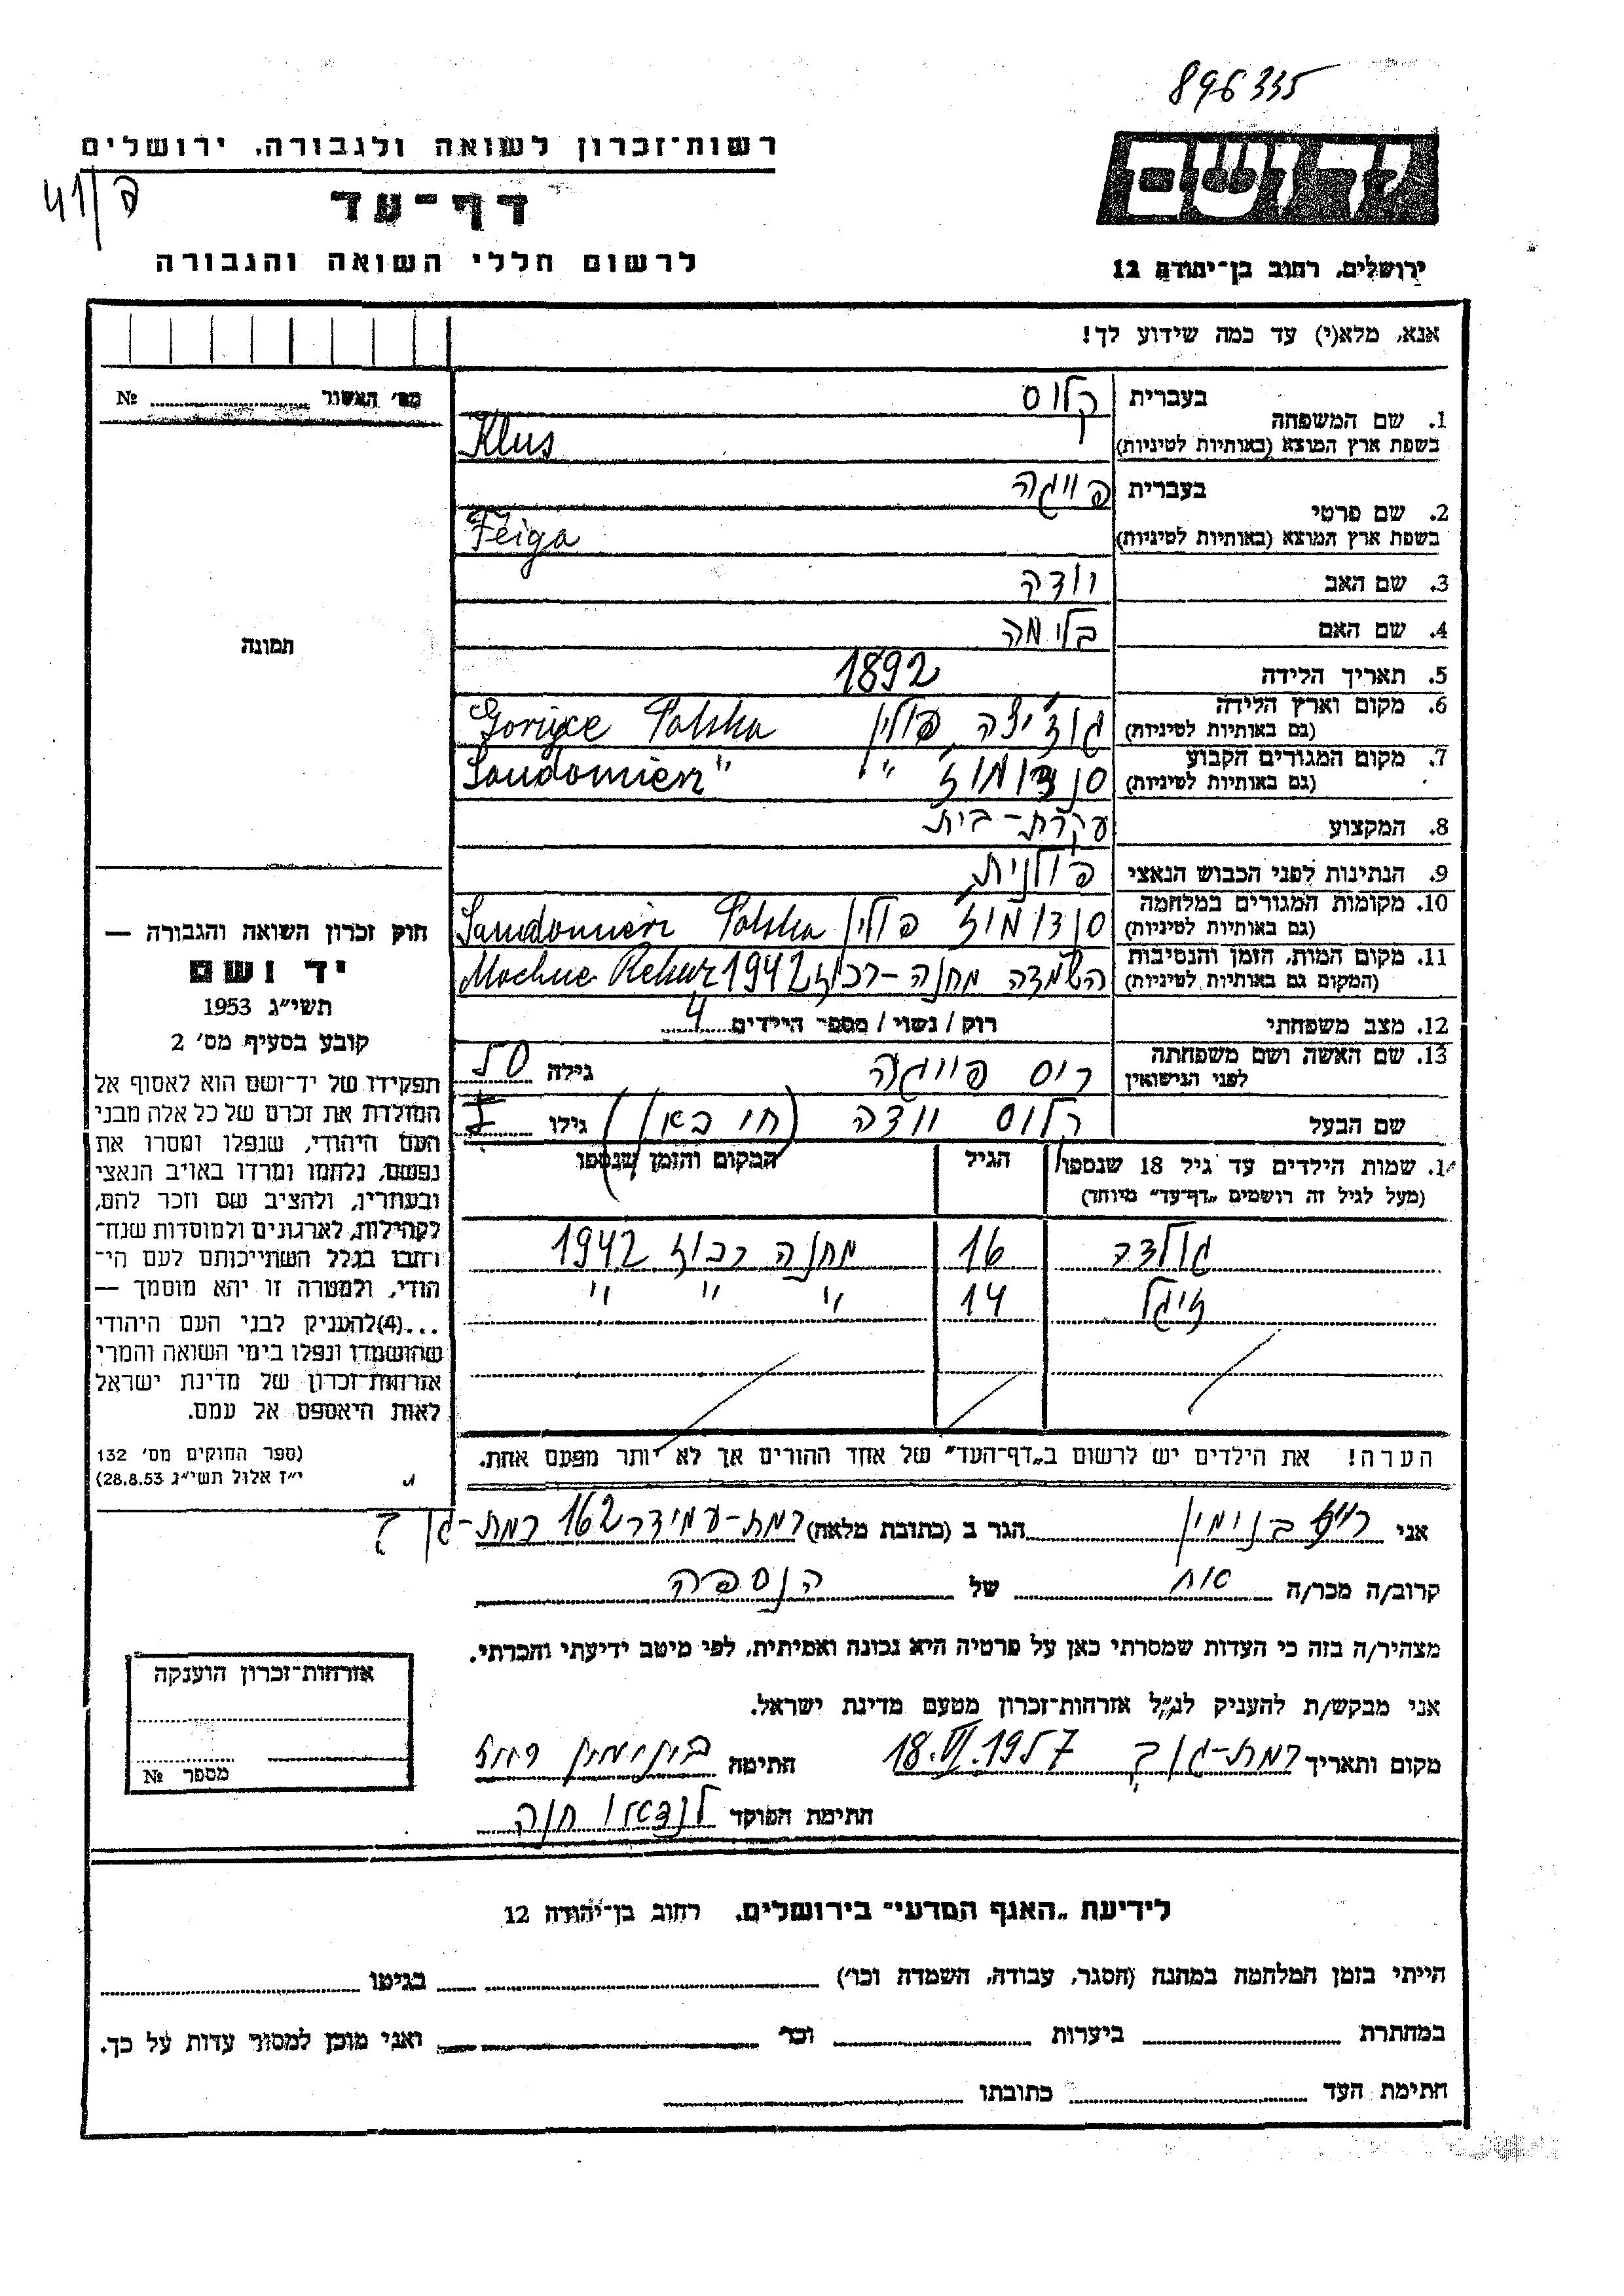 896335
רשות־זכרון לשואה ולגבורה, ירושלים
יד ושם
דף־עד
לרשום חללי השואה והגבורה
ירושלים, רחוב בן־יהודה 12
אנא, מלא(י) עד כמה שידוע לך!
מס׳ האשור № 
1. שם המשפחה
בעברית קלוס
בשפת ארץ המוצא (באותיות לטיניות) Klus
2. שם פרטי
בעברית פייגה
בשפת ארץ המוצא (באותיות לטיניות) Feiga
3. שם האב יודה
4. שם האם בלימה
תמונה
5. תאריך הלידה 1892
6. מקום וארץ הלידה
(גם באותיות לטיניות) פולין Polska
7. מקום המגורים הקבוע
(גם באותיות לטיניות) סנדומוז " Sandomierz "
8. המקצוע עקרת-בית
9. הנתינות לפני הכבוש הנאצי פולנית
10. מקומות המגורים במלחמה
(גם באותיות לטיניות) סנדומוז פולין Sandomierz Polska
11. מקום המות, הזמן והנסיבות
(המקום גם באותיות לטיניות) השמדה מחנה-רכוז 1942 Machne Rekuz
12. מצב משפחתי רוק / נשוי / מספר הילדים 4
13. שם האשה ושם משפחתה
לפני הנישואין רוס פייגה גילה 50
שם הבעל קלוס יודה (חי כאן) גילו
חוק זכרון השואה והגבורה —
יד ושם
תשי״ג 1953
קובע בסעיף מס׳ 2
תפקידו של יד־ושם הוא לאסוף אל
המולדת את זכרם של כל אלה מבני
העם היהודי, שנפלו ומסרו את
נפשם, נלחמו ומרדו באויב הנאצי
ובעוזריו, ולהציב שם וזכר להם,
לקהילות, לארגונים ולמוסדות שנח־
רבו בגלל השתייכותם לעם הי־
הודי, ולמטרה זו יהא מוסמך —
...(4) להעניק לבני העם היהודי
שהושמדו ונפלו בימי השואה והמרי
אזרחות־זכרון של מדינת ישראל
לאות היאספם אל עמם.
(ספר החוקים מס׳ 132
י״ז אלול תשי״ג 28.8.53)
14. שמות הילדים עד גיל 18 שנספו
(מעל לגיל זה רושמים „דף־עד״ מיוחד)
הגיל
המקום והזמן שנספו
גולדה 16 מחנה רכוז 1942
זיגל 14 " " " "
הערה! את הילדים יש לרשום ב„דף־העד״ של אחד ההורים אך לא יותר מפעם אחת.
אני רוז בנימין הגר ב (כתובת מלאה) רמת-עמידר 162 רמת-גן
קרוב/ה מכר/ה אח של הנספה
מצהיר/ה בזה כי העדות שמסרתי כאן על פרטיה היא נכונה ואמיתית, לפי מיטב ידיעתי והכרתי.
אני מבקש/ת להעניק לנ״ל אזרחות־זכרון מטעם מדינת ישראל.
מקום ותאריך רמת-גן 18.VI.1957 חתימה בנימין רוז
חתימת הפוקד לנדאו חנה
אזרחות־זכרון הוענקה
מספר №
לידיעת „האגף המדעי״ בירושלים, רחוב בן־יהודה 12
הייתי בזמן המלחמה במחנה (הסגר, עבודה, השמדה וכו׳) בגיטו
במחתרת ביערות וכו׳ ואני מוכן למסור עדות על כך.
חתימת העד כתובתו